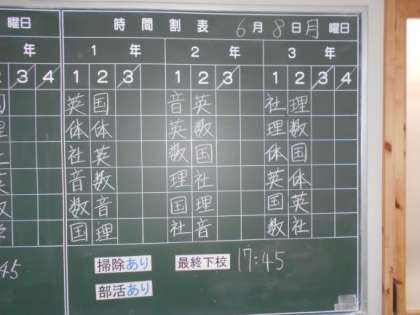 曜日 時間割表 6月8日月曜日
年 1年 2年 3年
2 3 4 1 2 3 1 2 3 1 2 3 4
国 英国 音英 社理
理 体体 英数 理数
社英 数国 体国
英 音数 理社 英体
数音 国理 国英
国理 社音 数社
45 掃除あり 最終下校 17:45
部活あり